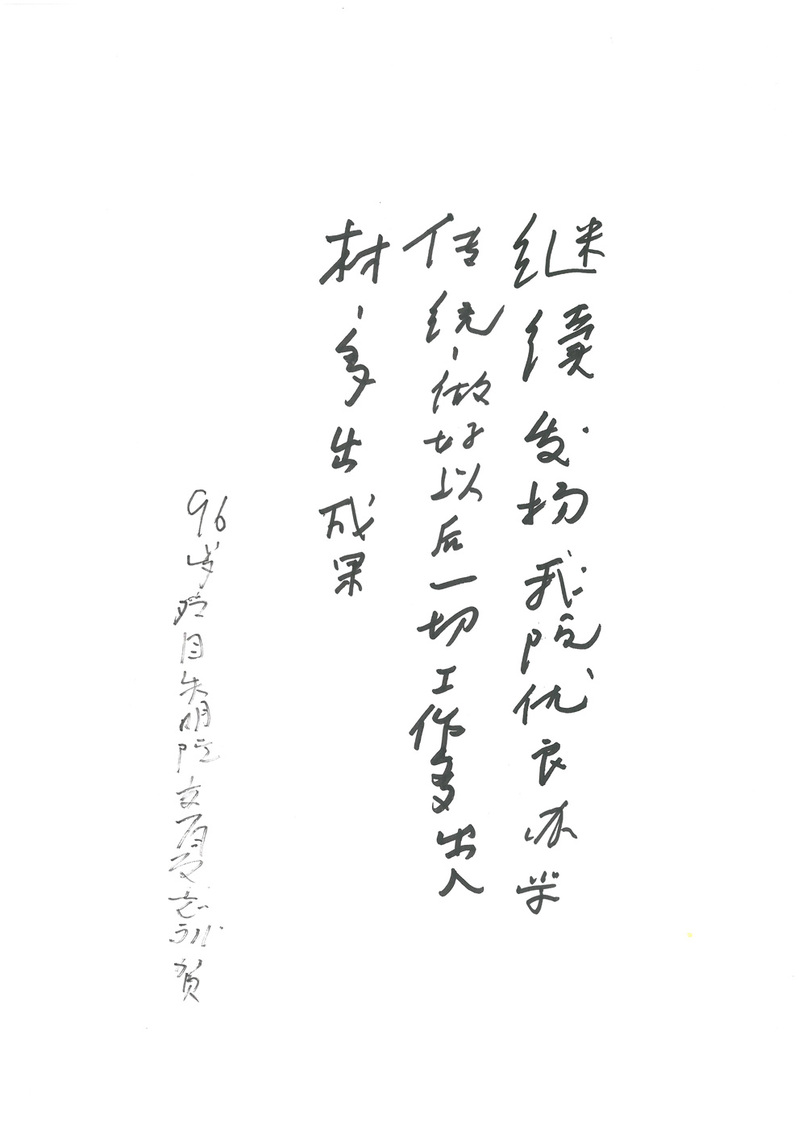 继续发扬我院优良办学
传统、做好以后一切工作多出人
材、多出成果
96岁双目失明院 贺